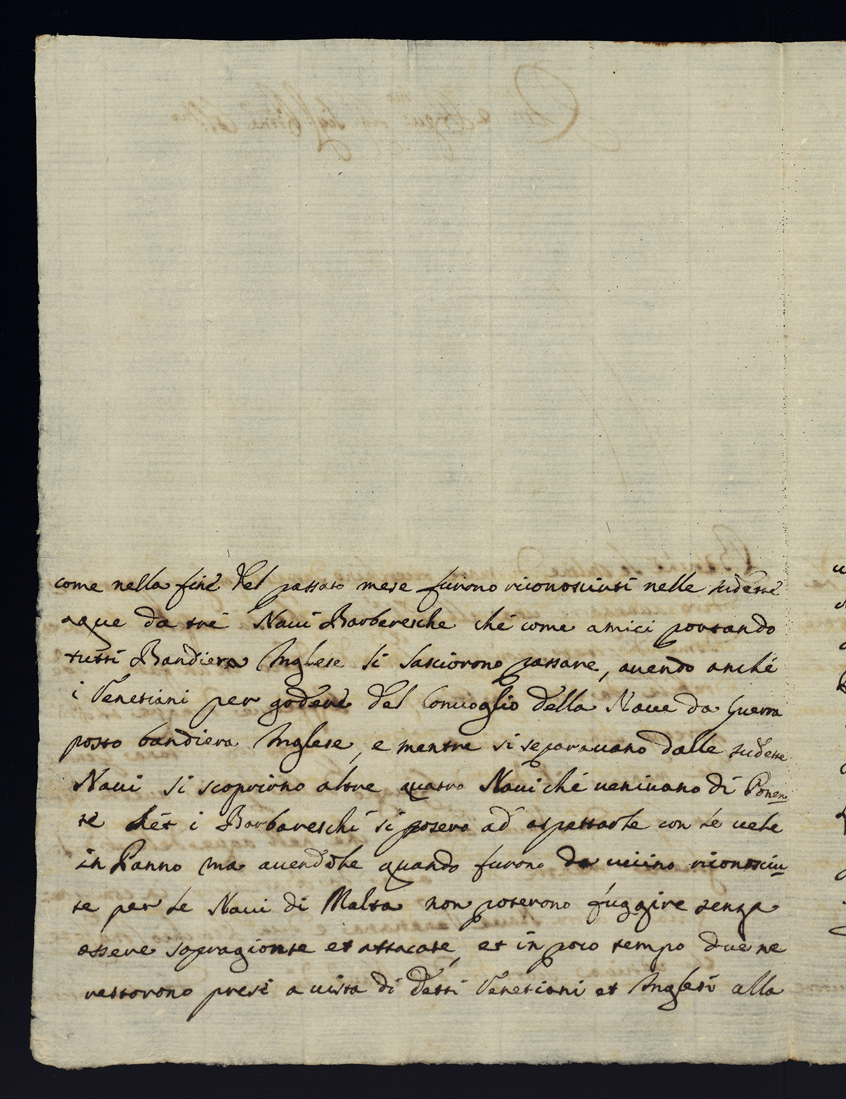 come nella finè del passato mese furono riconosciuti nelle sudettè
aque da trè Naui Barberesche chè come amici portando
tutti Bandiera Inglese li lasciorono passare, auendo anchè
i Venetiani per goderè del Conuoglio della Naue da Guerra
posto bandiera Inglese, e mentre si separauano dalle sudette
Naui si scoprirno altre quatro Naui chè ueniuano di Ponen
te et i Barbareschi si posero ad aspettarle con le uele
in Panno ma auendole quando furono da uicino riconosciu-
te per le Naui di Malta non poterono fuggire senza
essere sopragionte et attacate, et in poco tempo due ne
restorono presi a uista di detti Venetiani et Inglesi alla